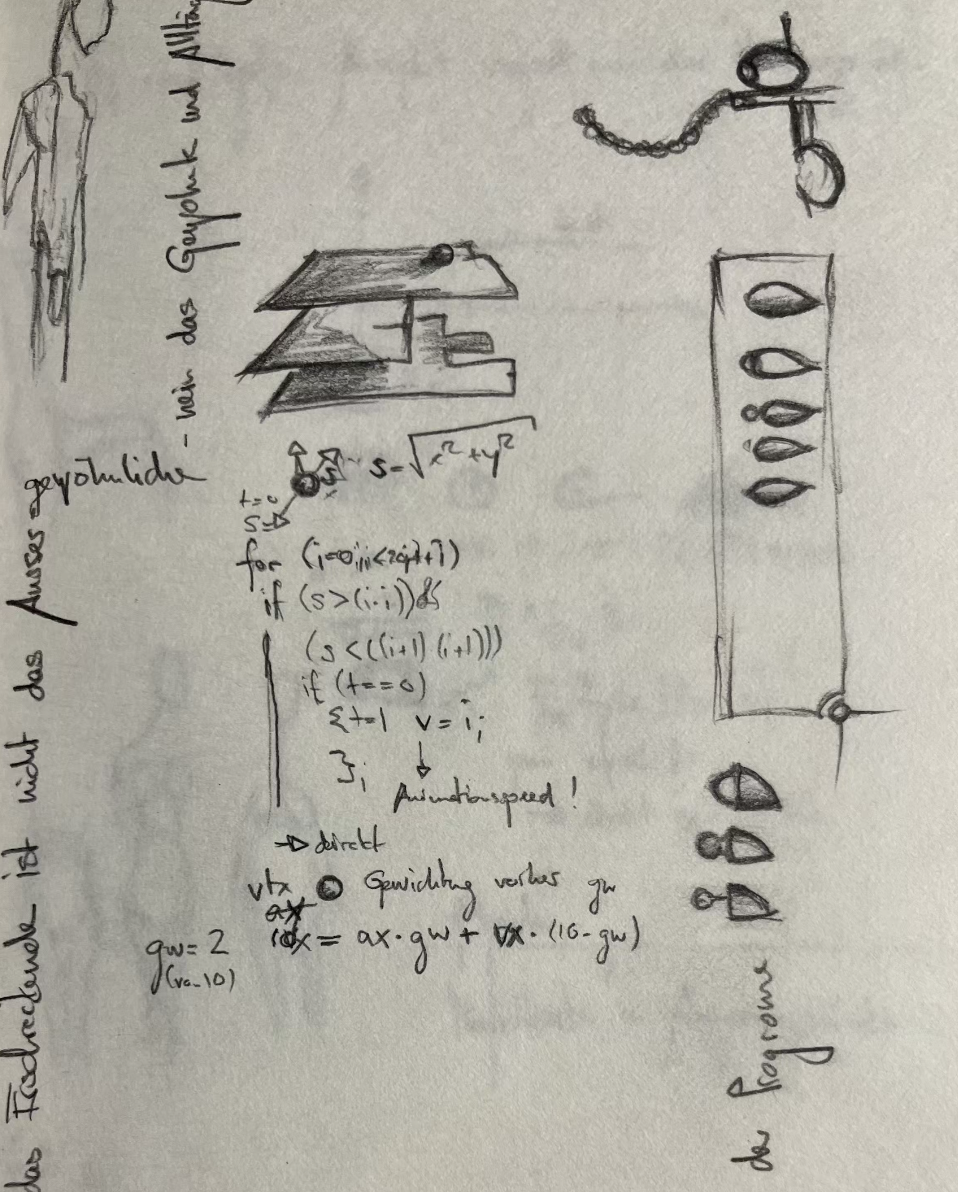 das Erschreckende ist nicht das Ausser-gewöhnliche
- nein das Gewohnte und Alltäg
s=√x²+y²
t=0
s=
for (i=0;i<20;i+1)
if (s>(i·i))&
(s<((i+1)(i+1)))
if (t==0)
{t=1 v=i;
};
Animationspeed!
→ direkt
vtx
ax
Gewichtung vorher gw
idx = ax·gw + vx·(10-gw)
gw=2
(vo_10)
der Programe